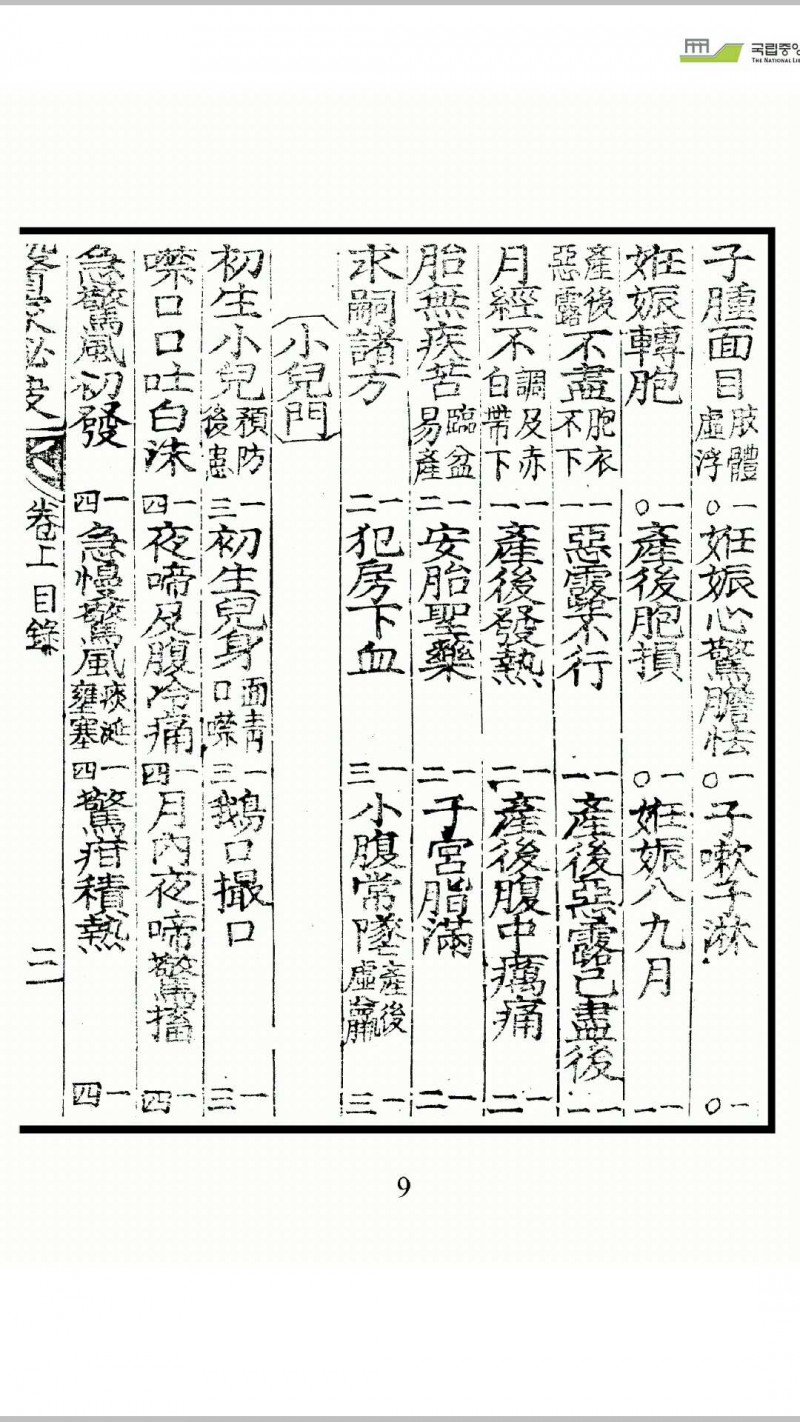 국립중앙
THE NATIONAL LIB
子腫面目肢體虛浮 一〇 姙娠心驚膽怯 一〇 子嗽子淋 一〇
姙娠轉胞 一〇 產後胞損 一〇 姙娠八九月 一一
產後惡露不盡胞衣不下 一一 惡露不行 一一 產後惡露已盡後 一一
月經不調及赤白帶下 一一 產後發熱 一二 產後腹中癘痛 一二
胎無疾苦臨盆易產 一二 安胎聖藥 一二 子宮脂滿 一二
求嗣諸方 一二 犯房下血 一三 小腹常墜產後虛羸 一三
小兒門
初生小兒預防後患 一三 初生兒身面靑口噤 一三 鵝口撮口 一三
噤口口吐白沫 一四 夜啼及腹冷痛 一四 月內夜啼驚搐 一四
急驚風初發 一四 急慢驚風痰涎壅塞 一四 驚疳積熱 一四
卷上 目錄 二
9